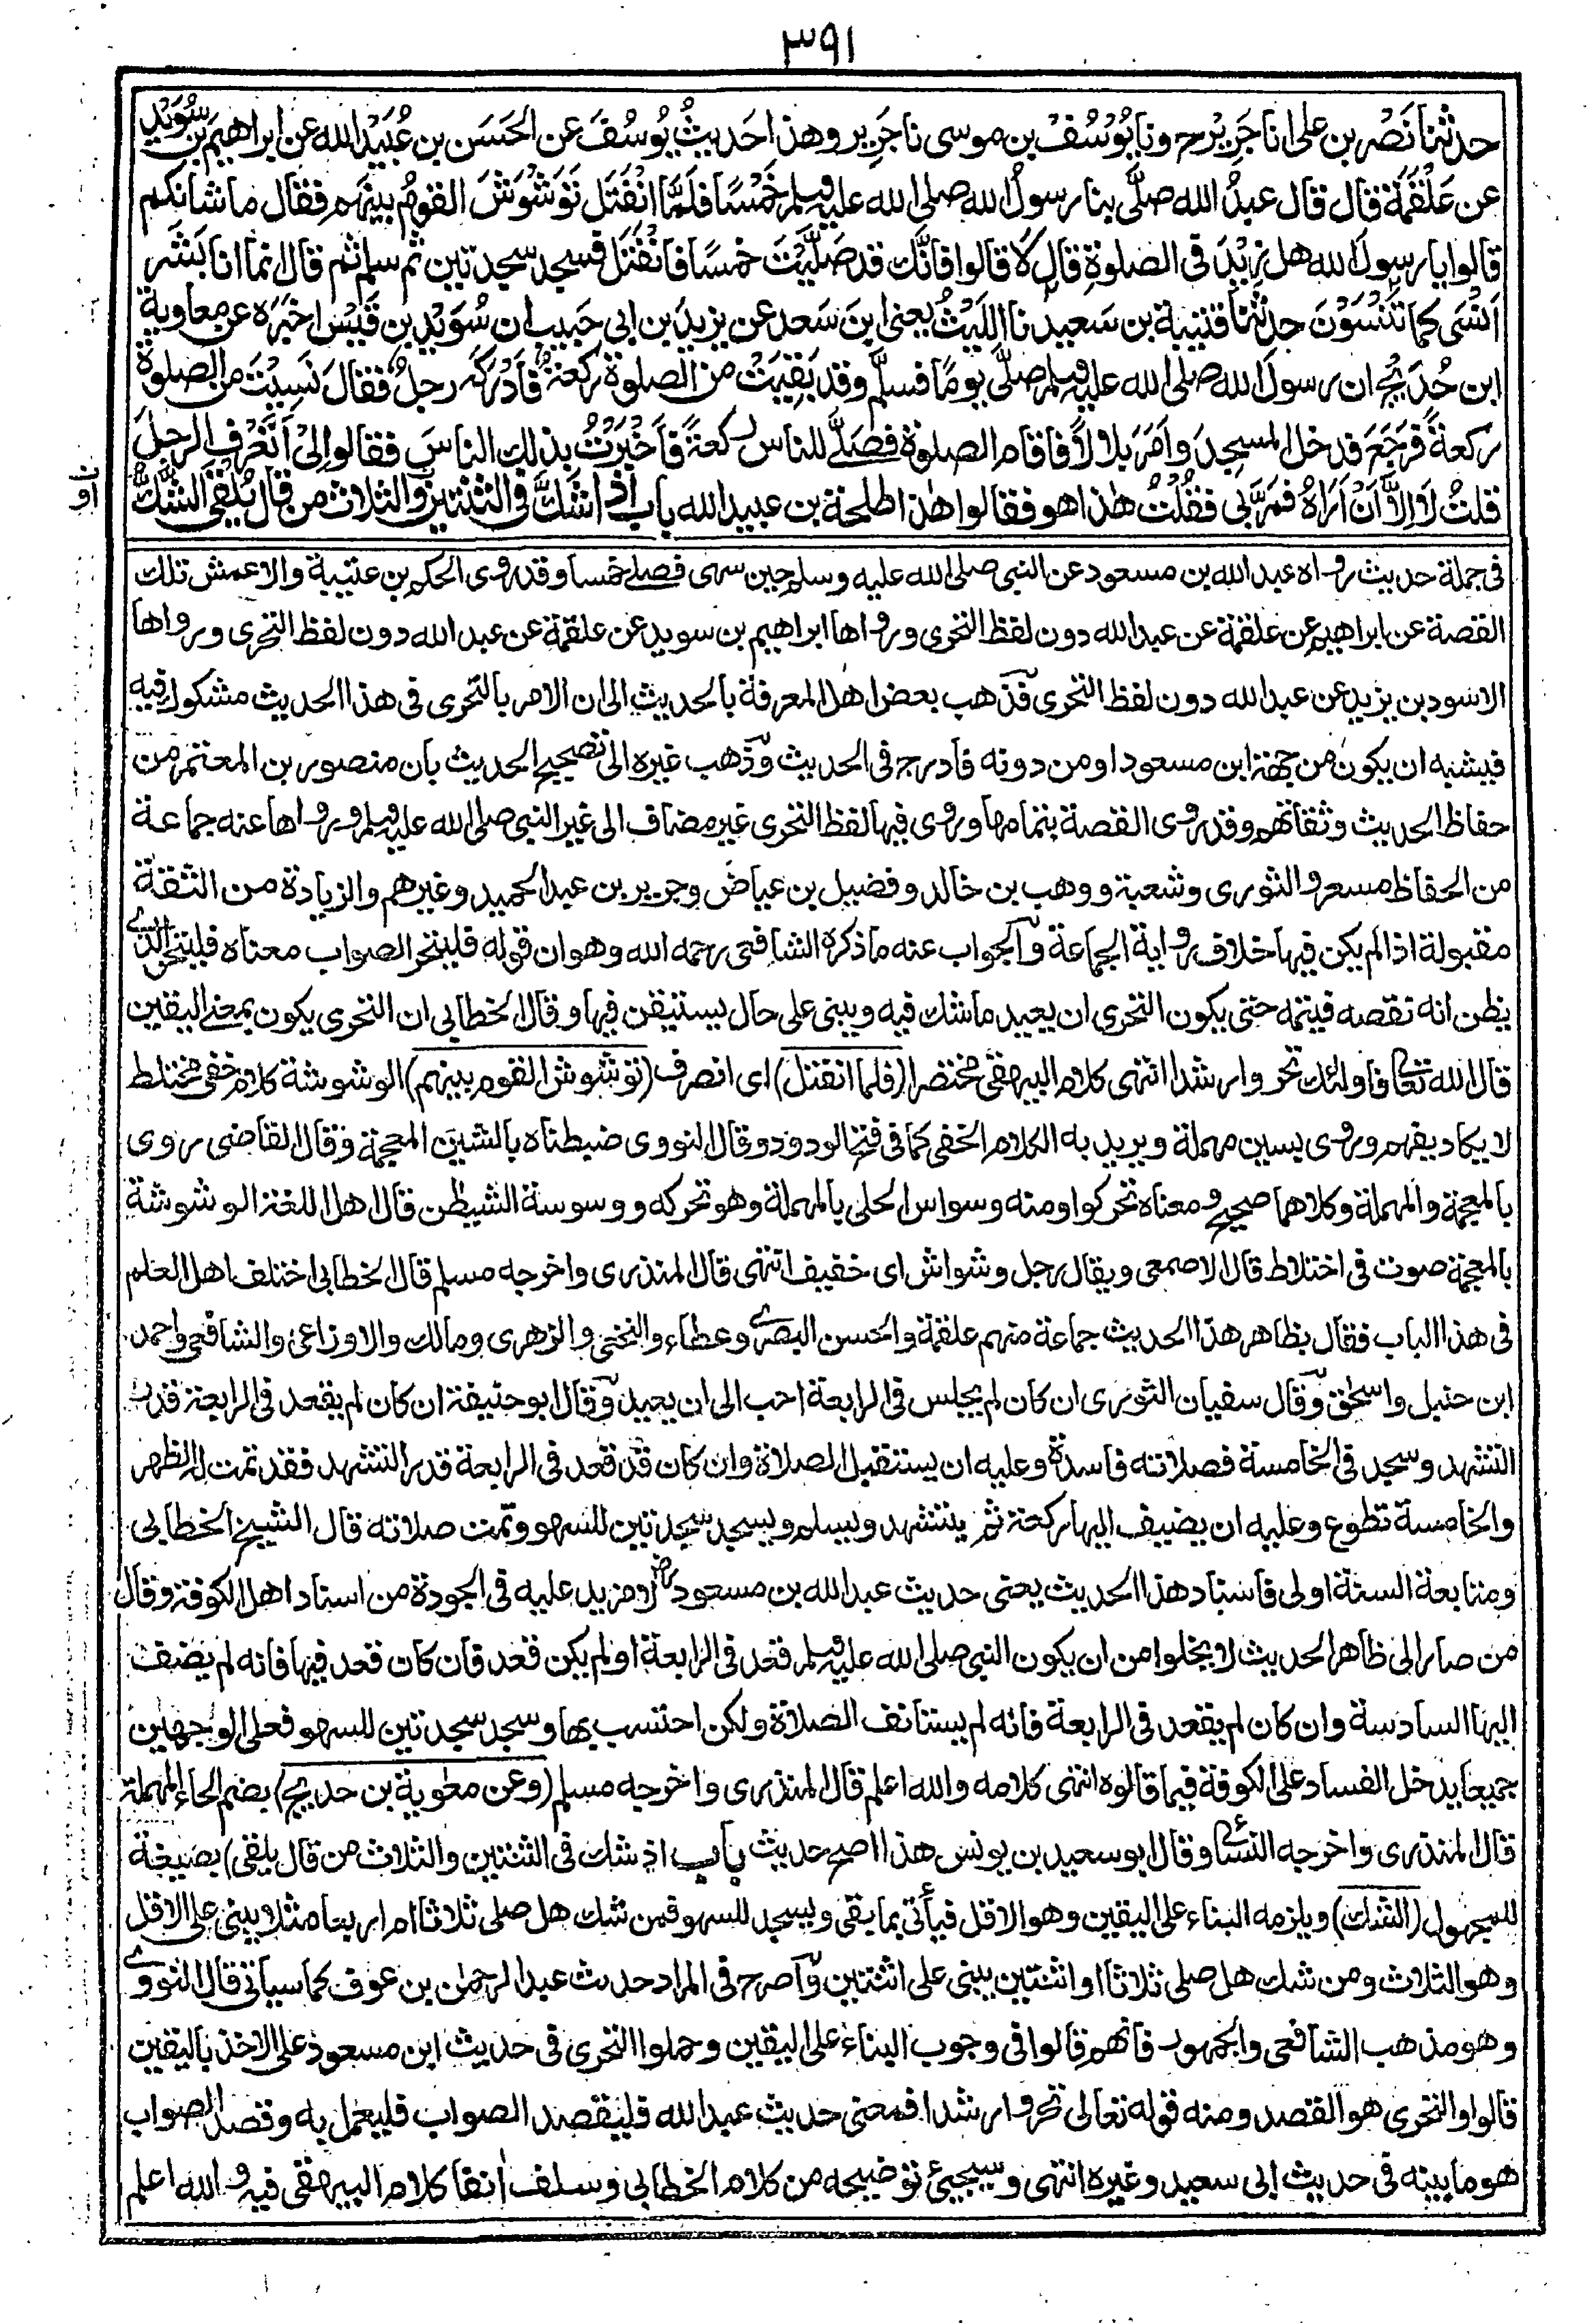 ٣٩١
حدثنا نَصْر بن علی انا جَرِیْر ح ونا یُوْسُفُ بن موسی نا جَرِیر وهذا حَدیثُ یُوسُفَ عن الحَسَن بن عُبَیْد الله عن ابراهیم بن سُوَیْد
عن عَلْقَمَة قال قال عبدُ الله صلَّی بنا رسولُ الله صلی الله علیه وسلم خَمْسًا فلَمَّا انْفَتَل تَوَشْوَشَ القومُ بینَهم فقال ما شانکم
قالوا یا رسولَ الله هل زِیْدَ فی الصلوةِ قال لَا قالوا فانَّك قد صَلَّیْتَ خمسًا فانْفَتَل فسجد سجدتین ثم سلم ثم قال انما انا بَشَر
اَنْسَی کما تَنْسَوْنَ حدثنا قتیبة بن سعید نا اللَیْثُ یعنی ابنَ سَعد عن یزیدَ بن ابی حَبیب ان سُوَیْد بن قَیْس اخبَرَه عن معاویة
ابن حُدَیْج ان رسولَ الله صلی الله علیه وسلم صلَّی یومًا فسلَّم وقد بَقِیَتْ من الصلوة رکعةٌ فاَدْرکَه رجلٌ فقالَ نَسِیْتَ من الصلوة
رکعةً فرَجَعَ فدخل المسجِدَ واَمَرَ بلالًا فاقام الصلوة فصَلَّے للناس رکعةً فاَخْبَرْتُ بذلك الناسَ فقالوا لِیْ اَتَعْرِف الرجلَ
قلتُ لَا اِلَّا اَنْ اَرَاهُ فمَرَّ بی فقُلْتُ هٰذا هو فقالوا هٰذا طلحة بن عبید الله باب اذا شَكَّ فی الثنتین والثلاث من قال یُلْقَی الشَّكُّ
فی جملة حدیث رواه عبد الله بن مسعود عن النبی صلی الله علیه وسلم حین سهی فصلے خمسا وقد روی الحکم بن عتیبة والاعمش تلك
القصة عن ابراهیم عن علقمة عن عبد الله دون لفظ التحری ورواها ابراهیم بن سوید عن علقمة عن عبد الله دون لفظ التحری ورواها
الاسود بن یزید عن عبد الله دون لفظ التحری فذهب بعض اهل المعرفة بالحدیث الی ان الامر بالتحری فی هذا الحدیث مشکوك فیه
فیشبه ان یکون من جهة ابن مسعود او من دونه فادرج فی الحدیث وذهب غیره الی تصحیح الحدیث بان منصور بن المعتمر من
حفاظ الحدیث وثقاتهم وقد روی القصة بتمامها وروی فیها لفظ التحری غیر مضاف الی غیر النبی صلی الله علیه وسلم ورواها عنه جماعة
من الحفاظ مسعر والثوری وشعبة ووهب بن خالد وفضیل بن عیاض وجریر بن عبد الحمید وغیرهم والزیادة من الثقة
مقبولة اذا لم یکن فیها خلاف روایة الجماعة والجواب عنه ما ذکره الشافعی رحمه الله وهو ان قوله فلیتحر الصواب معناه فلیتحر الذے
یظن انه نقصه فیتمه حتی یکون التحری ان یعید ما شك فیه ویبنی علی حال یستیقن فیها وقال الخطابی ان التحری یکون بمعنی الیقین
قال الله تعالی فاولئك تحروا رشدا انتهی کلام البیهقی مختصرا (فلما انفتل) ای انصرف (توشوش القوم بینهم) الوشوشة کلام خفی مختلط
لا یکاد یفهم وروی بسین مهملة ویرید به الکلام الخفی کما فی فتح الودود وقال النووی ضبطناه بالشین المعجمة وقال القاضی روی
بالمعجمة والمهملة وکلاهما صحیح ومعناه تحرکوا ومنه وسواس الحلی بالمهملة وهو تحرکه ووسوسة الشیطٰن قال اهل اللغة الوشوشة
بالمعجمة صوت فی اختلاط قال الاصمعی ویقال رجل وشواش ای خفیف انتهی قال المنذری واخرجه مسلم قال الخطابی اختلف اهل العلم
فی هذا الباب فقال بظاهر هذا الحدیث جماعة منهم علقمة والحسن البصرے وعطاء والنخعی والزهری ومالك والاوزاعی والشافعی واحمد
ابن حنبل واسحٰق وقال سفیان الثوری ان کان لم یجلس فی الرابعة احب الی ان یعید وقال ابو حنیفة ان کان لم یقعد فی الرابعة قدر
التشهد وسجد فی الخامسة فصلاته فاسدة وعلیه ان یستقبل الصلاة وان کان قد قعد فی الرابعة قدر التشهد فقد تمت له الظهر
والخامسة تطوع وعلیه ان یضیف الیها رکعة ثم یتشهد ویسلم ویسجد سجدتین للسهو وتمت صلاته قال الشیخ الخطابی
ومتابعة السنة اولی فاسناد هذا الحدیث یعنی حدیث عبد الله بن مسعود رض لا مزید علیه فی الجودة من اسناد اهل الکوفة وقال
من صار الی ظاهر الحدیث لا یخلوا من ان یکون النبی صلی الله علیه وسلم قعد فی الرابعة او لم یکن قعد فان کان قعد فیها فانه لم یضف
الیها السادسة وان کان لم یقعد فی الرابعة فانه لم یستانف الصلاة ولکن احتسب بها وسجد سجدتین للسهو فعلی الوجهین
جمیعا یدخل الفساد علی الکوفة فیما قالوه انتهی کلامه والله اعلم قال المنذری واخرجه مسلم (وعن معٰویة بن حدیج) بضم الحاء المهملة
قال المنذری واخرجه النسائی وقال ابو سعید بن یونس هذا اصح حدیث باب اذ شك فی الثنتین والثلاث من قال یلقی) بصیغة
للمجهول (الشك) ویلزمه البناء علی الیقین وهو الاقل فیأتی بما بقی ویسجد للسهو فمن شك هل صلی ثلاثا ام اربعا مثلا یبنی علی الاقل
وهو الثلاث ومن شك هل صلی ثلاثا او اثنتین یبنی علی اثنتین واصرح فی المراد حدیث عبد الرحمٰن بن عوف کما سیاتی قال النووے
وهو مذهب الشافعی والجمهور فانهم قالوا فی وجوب البناء علی الیقین وحملوا التحری فی حدیث ابن مسعود علی الاخذ بالیقین
قالوا والتحری هو القصد ومنه قوله تعالی تحروا رشدا فمعنی حدیث عبد الله فلیقصد الصواب فلیعمل به وقصد الصواب
هو ما بینه فی حدیث ابی سعید وغیره انتهی وسیجیئ توضیحه من کلام الخطابی وسلف اٰنفا کلام البیهقی فیه والله اعلم